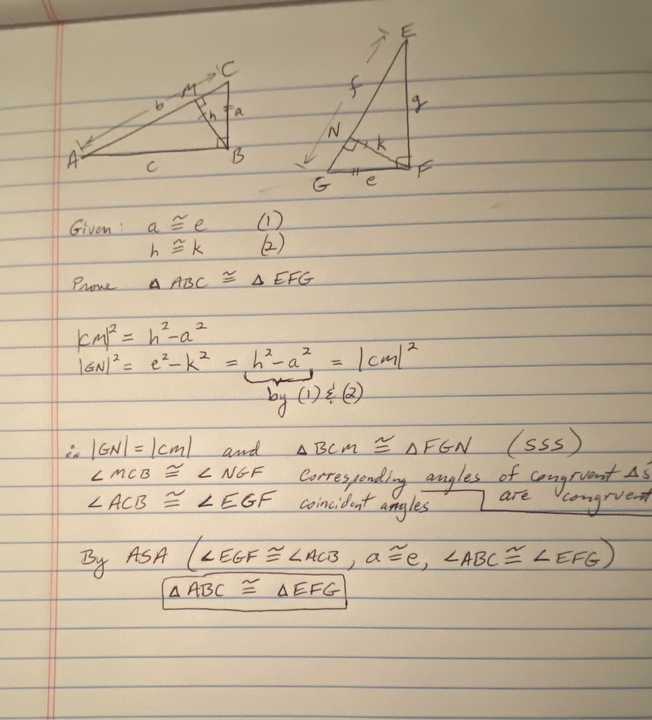 E
C
M
f
b
h
a
g
N
k
A
c
B
G
e
F
Given: a ≅ e (1)
h ≅ k (2)
Prove △ ABC ≅ △ EFG
|CM|² = h² - a²
|GN|² = e² - k² = h² - a² = |CM|²
by (1) & (2)
∴ |GN| = |CM| and △ BCM ≅ △ FGN (SSS)
∠ MCB ≅ ∠ NGF corresponding angles of congruent △s
∠ ACB ≅ ∠ EGF coincident angles are congruent
By ASA (∠EGF ≅ ∠ACB, a ≅ e, ∠ABC ≅ ∠EFG)
△ ABC ≅ △EFG